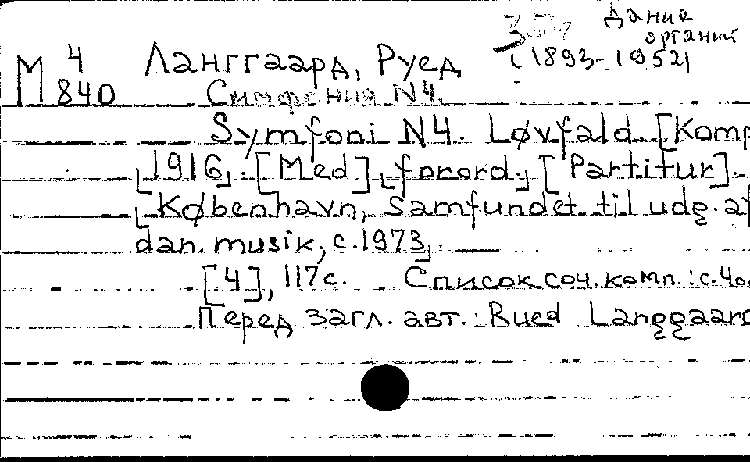 Дания
органист
М 4 Ланггаард, Руед (1893-1952)
840 Симфония N4.
Symfoni N4. Løvfald. [Komp.
1916]. [Med] forord. [Partitur].
København, Samfundet til udg. af
dan. musik, c.1973.
[4], 117 с. Список соч. комп.: с.4о.
Перед загл. авт.: Rued Langgaard